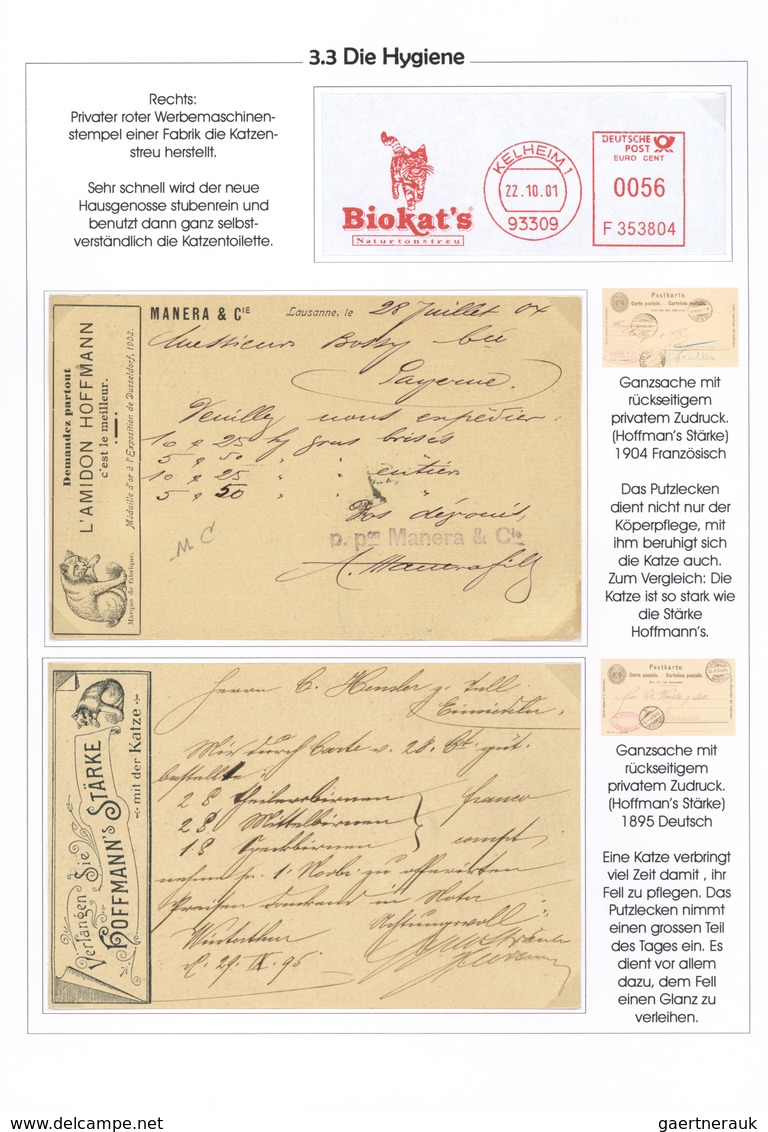 3.3 Die Hygiene
Rechts:
Privater roter Werbemaschinen-
stempel einer Fabrik die Katzen-
streu herstellt.
Sehr schnell wird der neue
Hausgenosse stubenrein und
benutzt dann ganz selbst-
verständlich die Katzentoilette.
Biokat's
Naturtonstreu
KELHEIM 1
22.10.01
93309
DEUTSCHE
POST
EURO CENT
0056
F 353804
Demandez partout
L'AMIDON HOFFMANN
c'est le meilleur.
Médaille d'or à l'Exposition de Dusseldorf, 1902.
Marque de fabrique.
MANERA & CIE Lausanne, le 28 Juillet 04
Messieurs Bossy &
Payerne.
Veuillez nous expédier:
10 25 kg gros brisés
5 50 " "
10 25 " " entier
5 50 " " "
p. pon Manera & Cie
MC
Postkarte.
Carte postale. — Cartolina postale.
Ganzsache mit
rückseitigem
privatem Zudruck.
(Hoffman's Stärke)
1904 Französisch
Das Putzlecken
dient nicht nur der
Köperpflege, mit
ihm beruhigt sich
die Katze auch.
Zum Vergleich: Die
Katze ist so stark wie
die Stärke
Hoffmann's.
Verlangen Sie
HOFFMANN'S STÄRKE
mit der Katze
Herrn C.
Einsiedeln.
Mir durch Carte v. 28. Ct. gut.
bestellte:
franco
Mittelbirnen
Speckbirnen
Achtungsvoll
Winterthur
d. 29. IX. 95
Postkarte.
Carte postale. — Cartolina postale.
Ganzsache mit
rückseitigem
privatem Zudruck.
(Hoffman's Stärke)
1895 Deutsch
Eine Katze verbringt
viel Zeit damit , ihr
Fell zu pflegen. Das
Putzlecken nimmt
einen grossen Teil
des Tages ein. Es
dient vor allem
dazu, dem Fell
einen Glanz zu
verleihen.
www.stamp-circuit.com
gaertnerauk